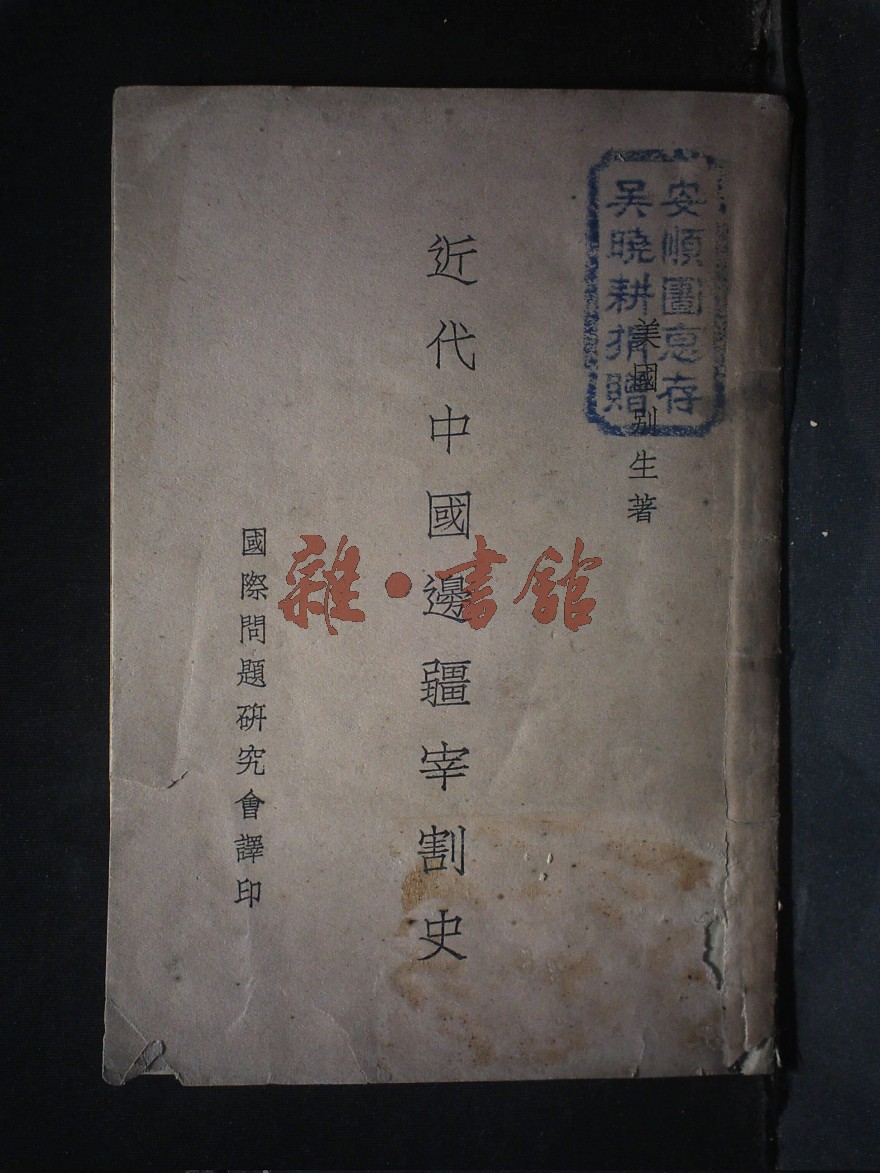 安順圖惠存
吴曉耕捐贈
美國别生著
近代中國邊疆宰割史
國際問題硏究會譯印
雜·書舘